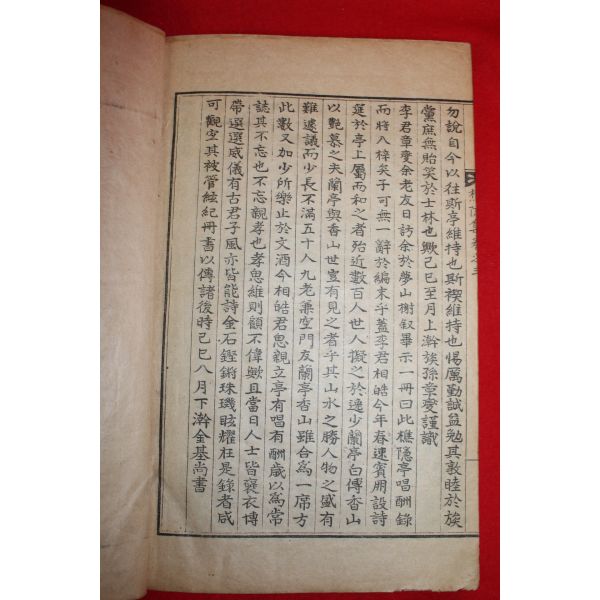 勿說自今以往斯亭維持也斯禊維持也惕厲勤誠益勉其敦睦於族
黨庶無貽笑於士林也歟己巳至月上澣族孫章燮謹識
李君章燮余老友日訪余於夢山榭叙畢示一冊曰此樵隱亭唱酬錄
而將入梓矣子可無一辭於編末乎蓋李君相皓今年春速賓朋設詩
筵於亭上屬而和之者殆近數百人世人擬之於逸少蘭亭白傅香山
以艶慕之夫蘭亭與香山世豈有見之者乎其山水之勝人物之盛有
難遽議而少長不滿五十人九老兼空門友蘭亭香山雖合爲一席方
此數又加少所樂止於文酒今相皓君思親立亭有唱有酬歲以爲常
誌其不忘也不忘親孝也孝思維則顧不偉歟且當日人士皆褒衣博
帶選選威儀有古君子風亦皆能詩金石鏗鏘珠璣眩耀在是錄者咸
可觀宜其被管絃紀冊書以傳諸後時己巳八月下澣金基尚書